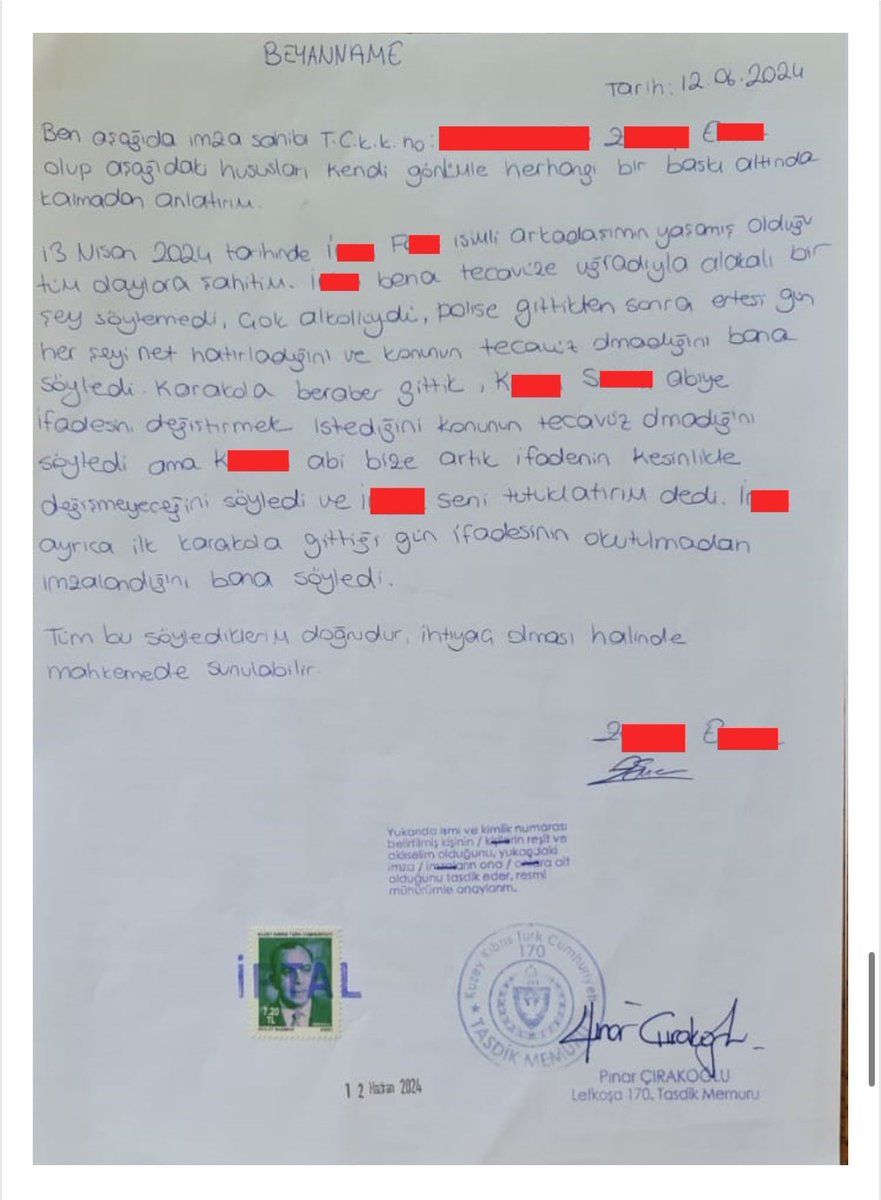 BEYANNAME
Tarih: 12.06.2024
Ben aşağıda imza sahibi T.C.k.k. no: 2 E
olup aşağıdaki hususları kendi gönlümle herhangi bir baskı altında
kalmadan anlatırım.
13 Nisan 2024 tarihinde İ F isimli arkadaşımın yaşamış olduğu
tüm olaylara şahitim. İ bana tecavüze uğradıyla alakalı bir
şey söylemedi, çok alkollüydü, polise gittikten sonra ertesi gün
her şeyi net hatırladığını ve konunun tecavüz olmadığını bana
söyledi. Karakola beraber gittik, K S abiye
ifadesni değiştirmek istediğini konunun tecavüz olmadığını
söyledi ama K abi bize artık ifadenin kesinlikle
değişmeyeceğini söyledi ve İ seni tutuklatırım dedi. İ
ayrıca ilk karakola gittiği gün ifadesinin okutulmadan
imzalandığını bana söyledi.
Tüm bu söylediklerim doğrudur, ihtiyaç olması halinde
mahkemede sunulabilir.
2 E
Yukarıda ismi ve kimlik numarası
belirtilmiş kişinin / kişilerin reşit ve
aklıselim olduğunu, yukarıdaki
imza / imzaların ona / onlara ait
olduğunu tasdik eder, resmi
mühürümle onaylarım.
İPTAL
7,20
TL
Kuzey Kıbrıs Türk Cumhuriyeti
170
TASDİK MEMURU
Pınar Çırakoğlu
Pınar ÇIRAKOĞLU
Lefkoşa 170. Tasdik Memuru
12 Haziran 2024